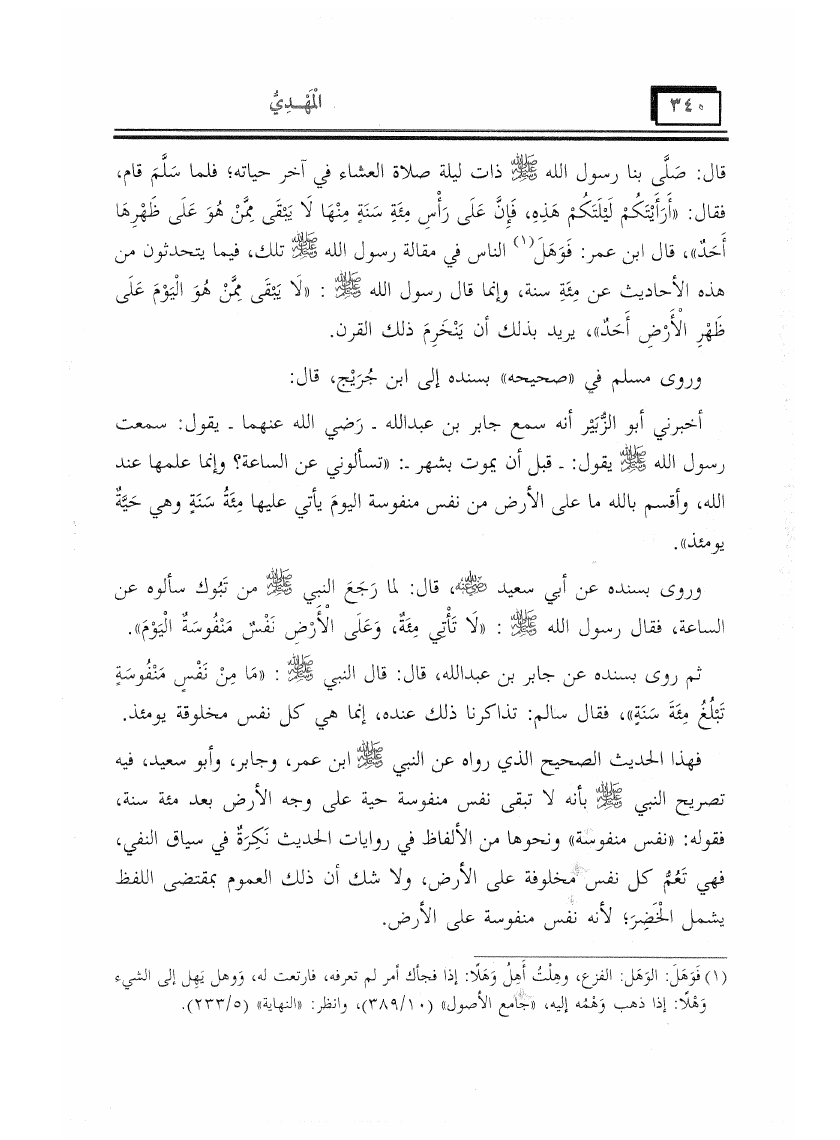 ٣٤٠
المَهْـدِيُّ
قال: صَلَّى بنا رسول الله ﷺ ذات ليلة صلاة العشاء في آخر حياته؛ فلما سَلَّمَ قام،
فقال: «أَرَأَيْتَكُمْ لَيْلَتَكُمْ هَذِهِ، فَإِنَّ عَلَى رَأْسِ مِئَةِ سَنَةٍ مِنْهَا لَا يَبْقَى مِمَّنْ هُوَ عَلَى ظَهْرِهَا
أَحَدٌ»، قال ابن عمر: فَوَهَلَ(١) الناس في مقالة رسول الله ﷺ تلك، فيما يتحدثون من
هذه الأحاديث عن مِئَةِ سنة، وإنما قال رسول الله ﷺ : «لَا يَبْقَى مِمَّنْ هُوَ الْيَوْمَ عَلَى
ظَهْرِ الْأَرْضِ أَحَدٌ»، يريد بذلك أن يَنْخَرِمَ ذلك القرن.
وروى مسلم في «صحيحه» بسنده إلى ابن جُرَيْج، قال:
أخبرني أبو الزُّبَيْر أنه سمع جابر بن عبدالله ـ رَضي الله عنهما ـ يقول: سمعت
رسول الله ﷺ يقول: ـ قبل أن يموت بشهر ـ: «تسألوني عن الساعة؟ وإنما علمها عند
الله، وأقسم بالله ما على الأرض من نفس منفوسة اليومَ يأتي عليها مِئَةُ سَنَةٍ وهي حَيَّةٌ
يومئذ».
وروى بسنده عن أبي سعيد رضي الله عنه، قال: لما رَجَعَ النبي ﷺ من تَبُوك سألوه عن
الساعة، فقال رسول الله ﷺ : «لَا تَأْتِي مِئَةٌ، وَعَلَى الْأَرْضِ نَفْسٌ مَنْفُوسَةٌ الْيَوْمَ».
ثم روى بسنده عن جابر بن عبدالله، قال: قال النبي ﷺ : «مَا مِنْ نَفْسٍ مَنْفُوسَةٍ
تَبْلُغُ مِئَةَ سَنَةٍ»، فقال سالم: تذاكرنا ذلك عنده، إنما هي كل نفس مخلوقة يومئذ.
فهذا الحديث الصحيح الذي رواه عن النبي ﷺ ابن عمر، وجابر، وأبو سعيد، فيه
تصريح النبي ﷺ بأنه لا تبقى نفس منفوسة حية على وجه الأرض بعد مئة سنة،
فقوله: «نفس منفوسة» ونحوها من الألفاظ في روايات الحديث نَكِرَةٌ في سياق النفي،
فهي تَعُمُّ كل نفس مخلوفة على الأرض، ولا شك أن ذلك العموم بمقتضى اللفظ
يشمل الْخَضِرَ؛ لأنه نفس منفوسة على الأرض.
(١) فَوَهَلَ: الوَهَل: الفزع، وهِلْتُ أَهِلُ وَهَلًا: إذا فجأك أمر لم تعرفه، فارتعت له، وَوهل يَهِل إلى الشيء
وَهْلًا: إذا ذهب وَهْمُه إليه، «جامع الأصول» (٣٨٩/١٠)، وانظر: «النهاية» (٢٣٣/٥).